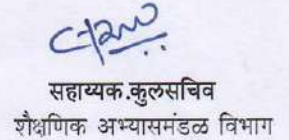 सहाय्यक.कुलसचिव
शैक्षणिक अभ्यासमंडळ विभाग